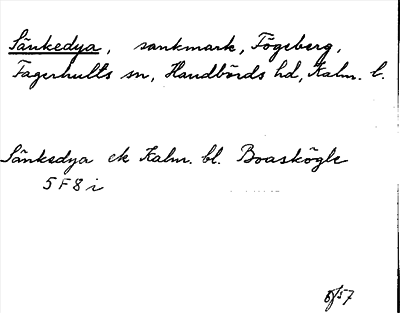 Sänkedya, sankmark, Fögeberg,
Fagerhults sn, Handbörds hd, Kalm. l.
Sänkedya ek Kalm. bl. Boaskögle
5 F 8 i